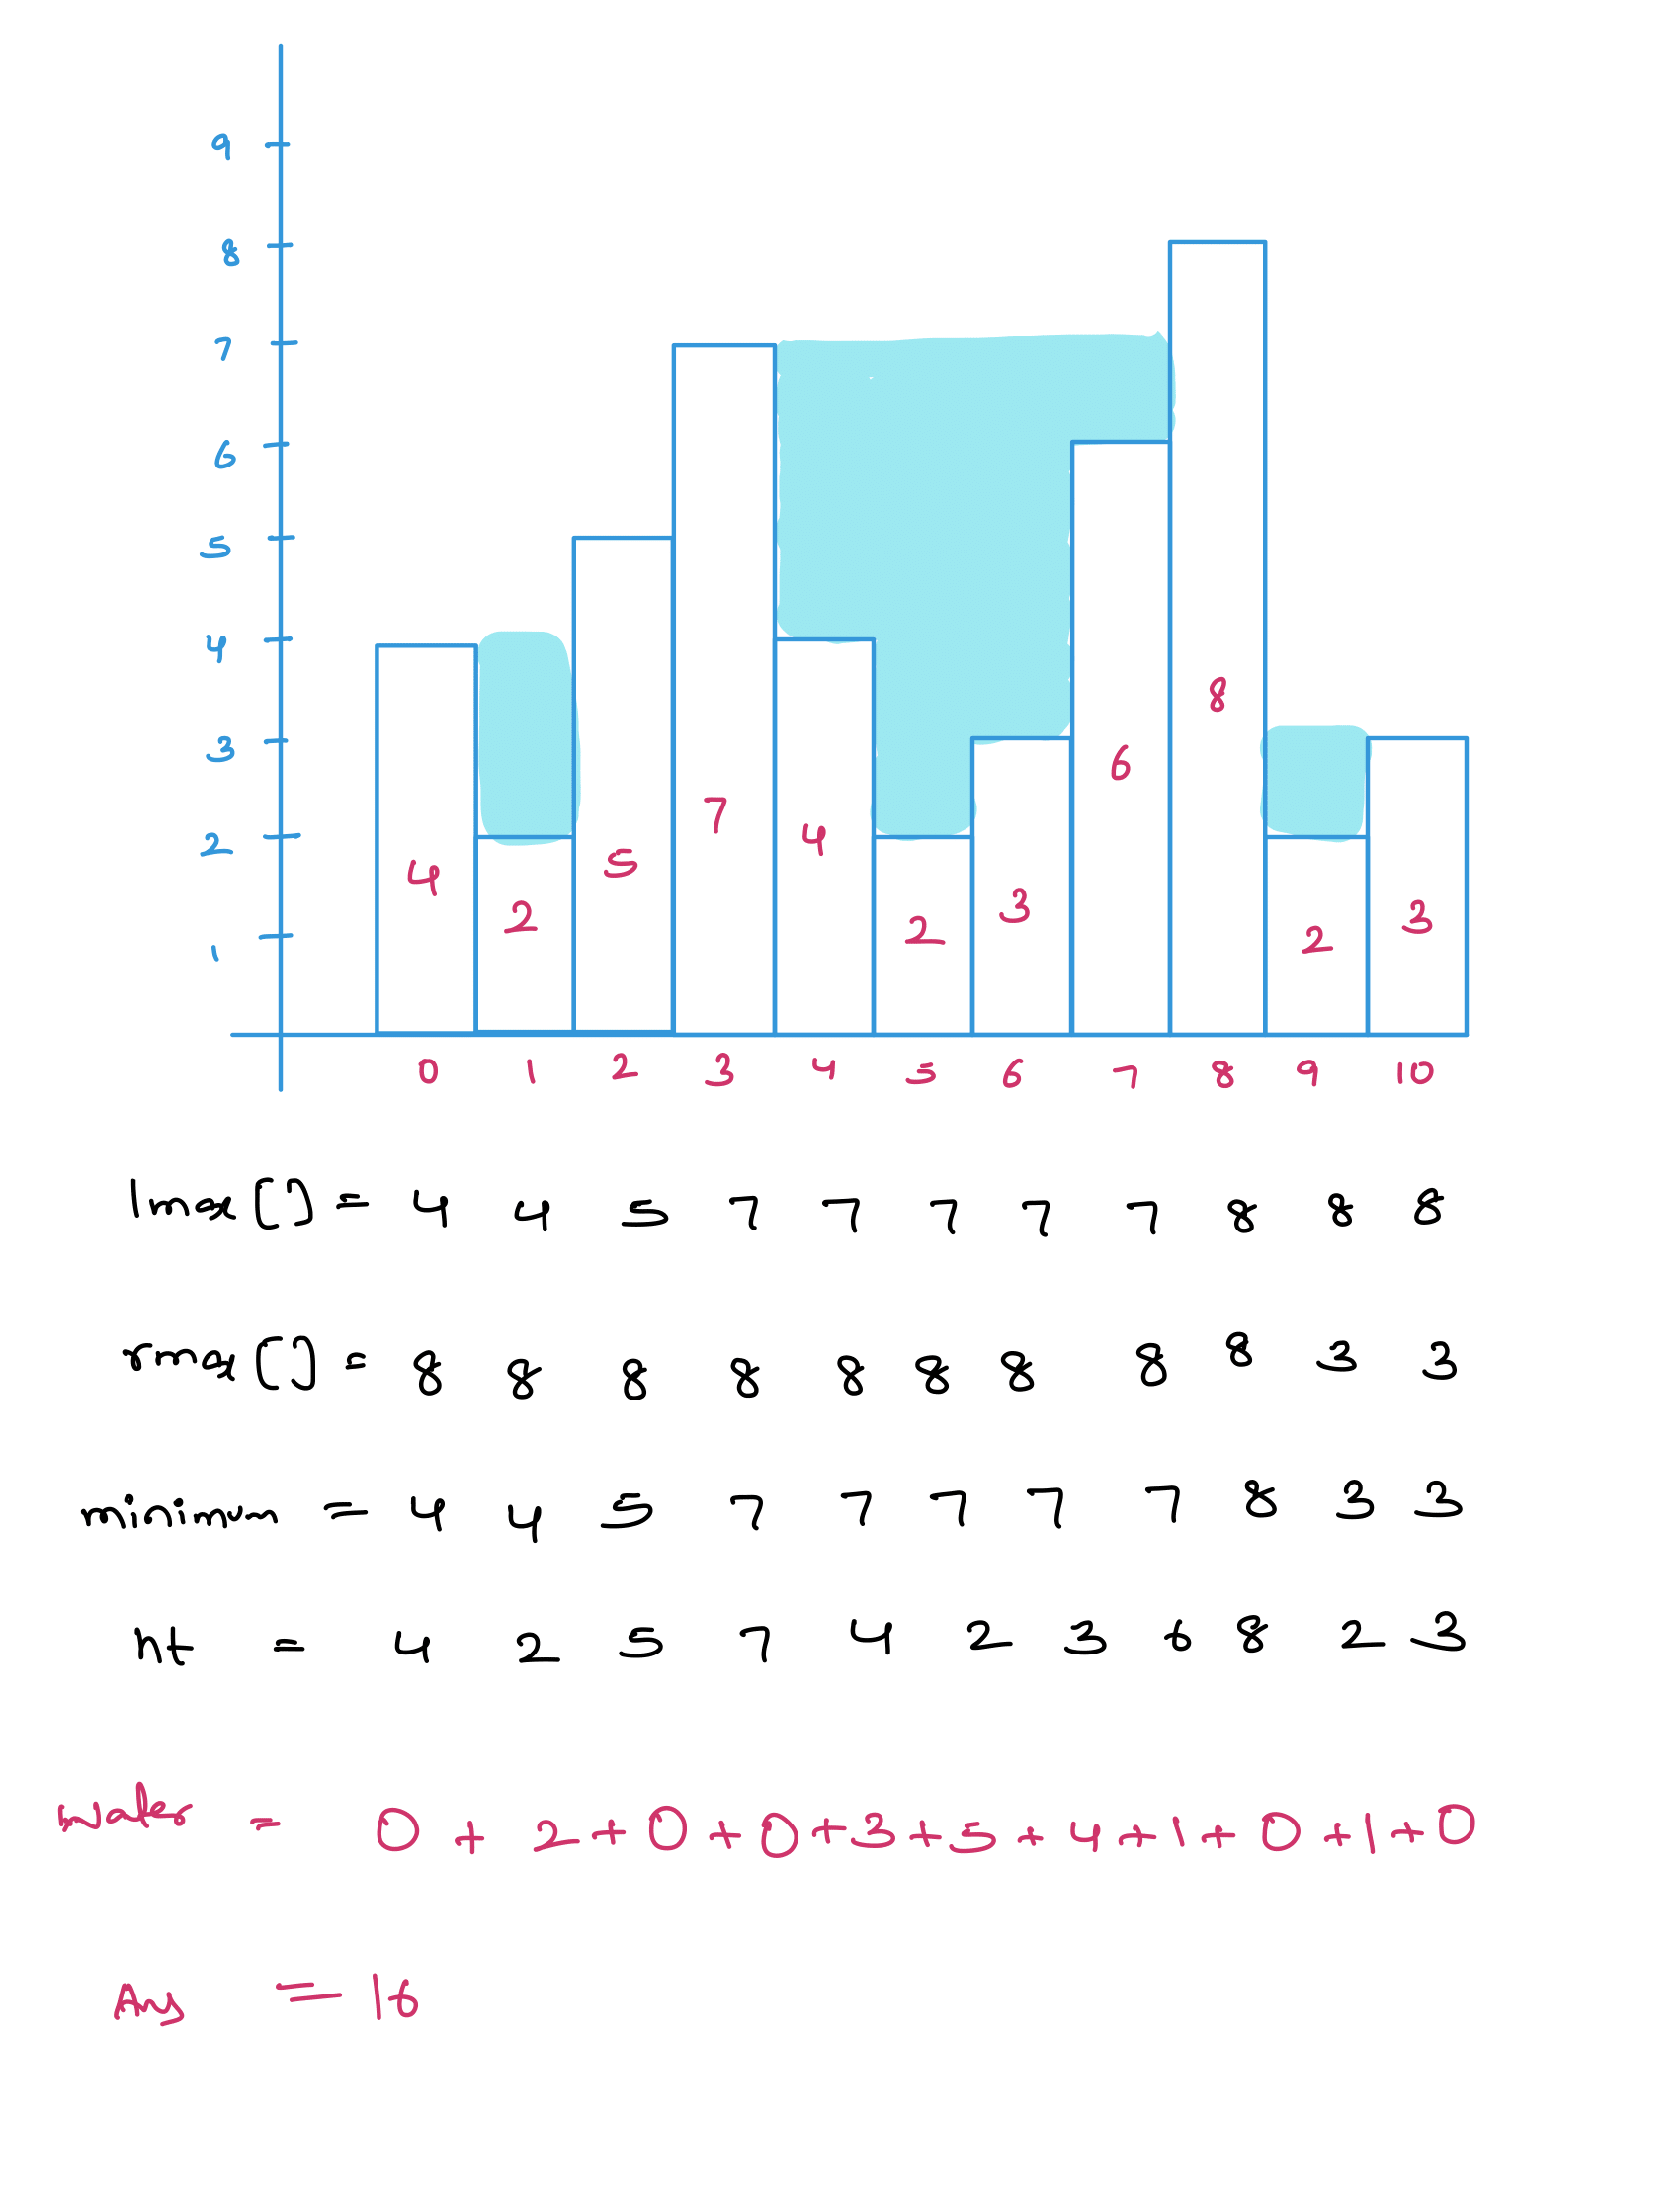 9
8
7
6
5
4
3
2
1
4 2 5 7 4 2 3 6 8 2 3
0 1 2 3 4 5 6 7 8 9 10
lmax[] = 4 4 5 7 7 7 7 7 8 8 8
rmax[] = 8 8 8 8 8 8 8 8 8 3 3
minimum = 4 4 5 7 7 7 7 7 8 3 3
ht = 4 2 5 7 4 2 3 6 8 2 3
Water = 0 + 2 + 0 + 0 + 3 + 5 + 4 + 1 + 0 + 1 + 0
Ans = 16